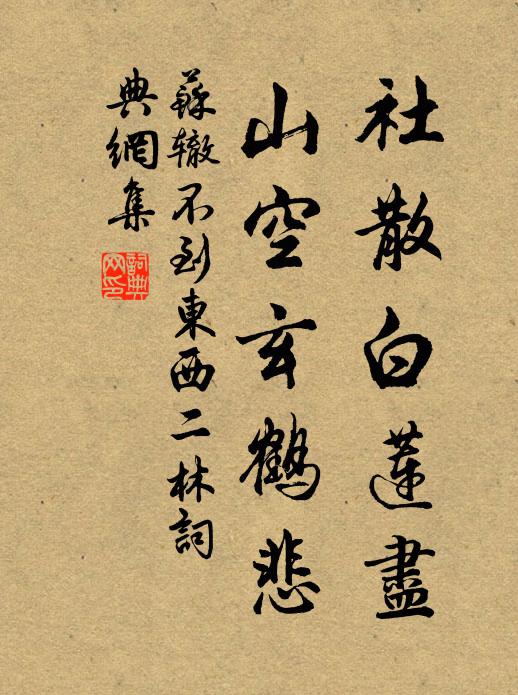 社散白蓮盡
山空玄鶴悲
蘇轍不到東西二林詞
典網集
詞典網印